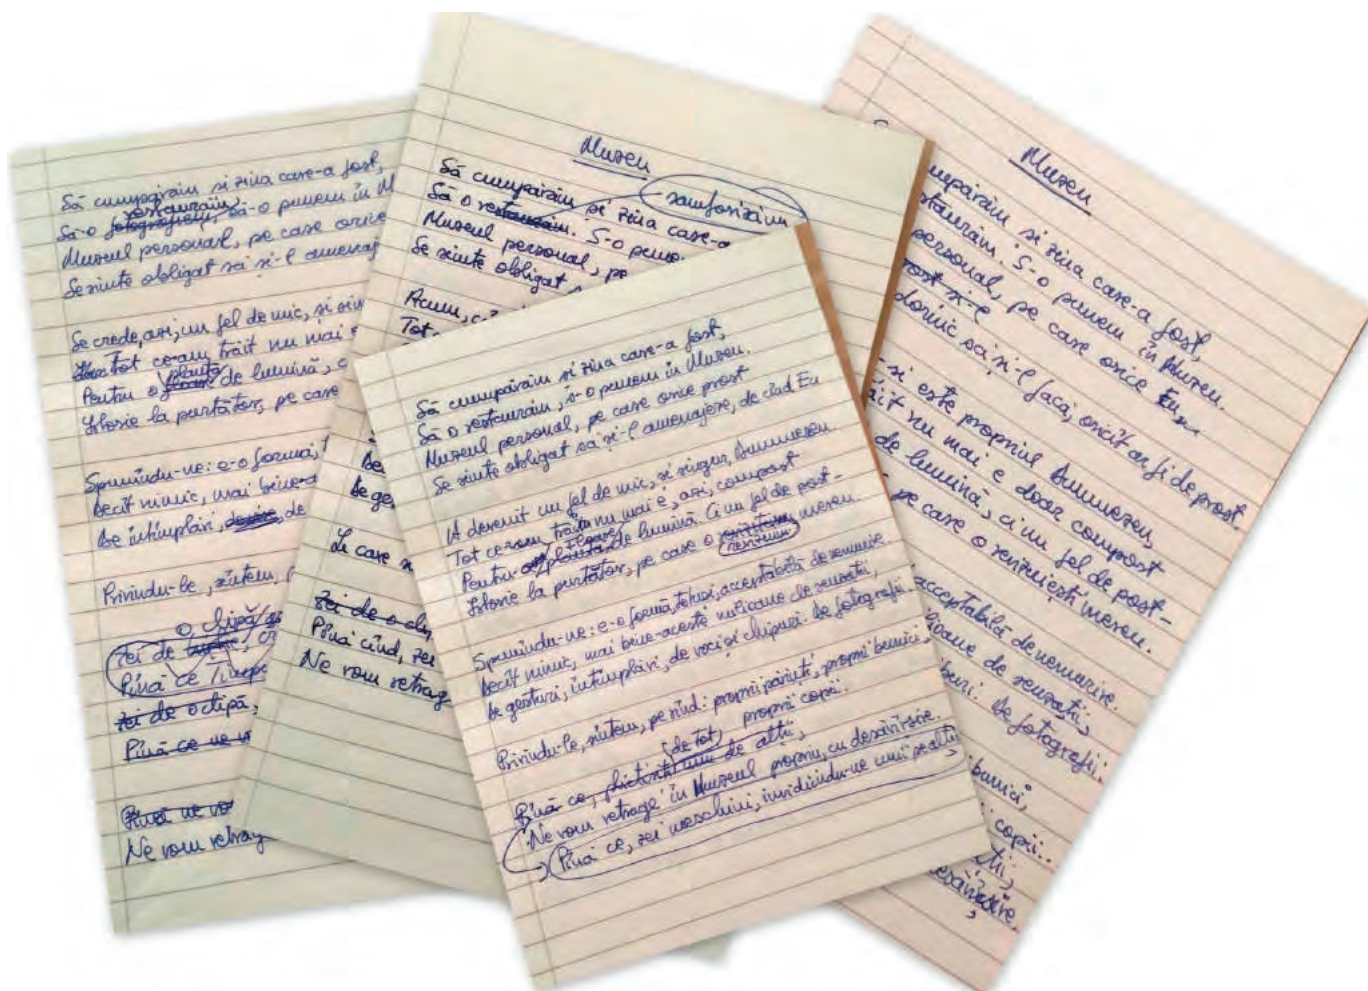 Să cumpărăm și ziua care-a fost,
restaurăm
Să-o fotografiem, să-o punem în M
Muzeul personal, pe care orice
Se simte obligat să și-l amenaj
Se crede, azi, un fel de mic, și sin
Tot ce-am trăit nu mai e
planta
Pentru o floare de lumină, c
Istorie la purtător, pe care
Spunîndu-ne: e-o formă,
Decît nimic, mai bine-a
De întîmplări, de
Privindu-le, sîntem, p
o clipă
zei de
Pînă ce
zei de o clipă,
Pînă ce ne v
Pînă ne vo
Ne vom retrag
Muzeu
Să cumpărăm și ziua care-a
sanforizăm
Să o restaurăm. S-o punem
Muzeul personal, pe
Se simte obligat
Acum, c
Tot
De
De ges
În care
Zei de o clip
Pînă cînd, zei
Ne vom retrag
Să cumpărăm și ziua care-a fost,
Să o restaurăm, s-o punem în Muzeu.
Muzeul personal, pe care orice prost
Se simte obligat să și-l amenajeze, de cînd Eu
A devenit un fel de mic, și singur, Dumnezeu.
Tot ce-am trăit nu mai e, azi, compost
floare
Pentru o plantă de lumină. Ci un fel de post-
Istorie la purtător, pe care o revizităm mereu.
revizuim
Spunîndu-ne: e-o formă, totuși, acceptabilă de nemurire.
Decît nimic, mai bine-aceste milioane de senzații,
De gesturi, întîmplări, de voci și chipuri. De fotografii.
Privindu-le, sîntem, pe rînd: proprii părinți, proprii bunici,
proprii copii.
de tot
Pînă ce, plictisiți unii de alții,
Ne vom retrage în Muzeul propriu, cu desăvîrșire.
Pînă ce, zei meschini, invidiindu-ne unii pe alții,
Muzeu
mpărăm și ziua care-a fost,
staurăm. S-o punem în Muzeu.
personal, pe care orice Eu,
prost și-e
dornic să și-l facă, oricît ar fi de prost
și este propriul Dumnezeu,
ăit nu mai e doar compost
de lumină, ci un fel de post-
pe care o revizuiești mereu.
acceptabilă de nemurire.
lioane de senzații,
puri. De fotografii.
bunici,
copii.
ții,
desăvîrșire.